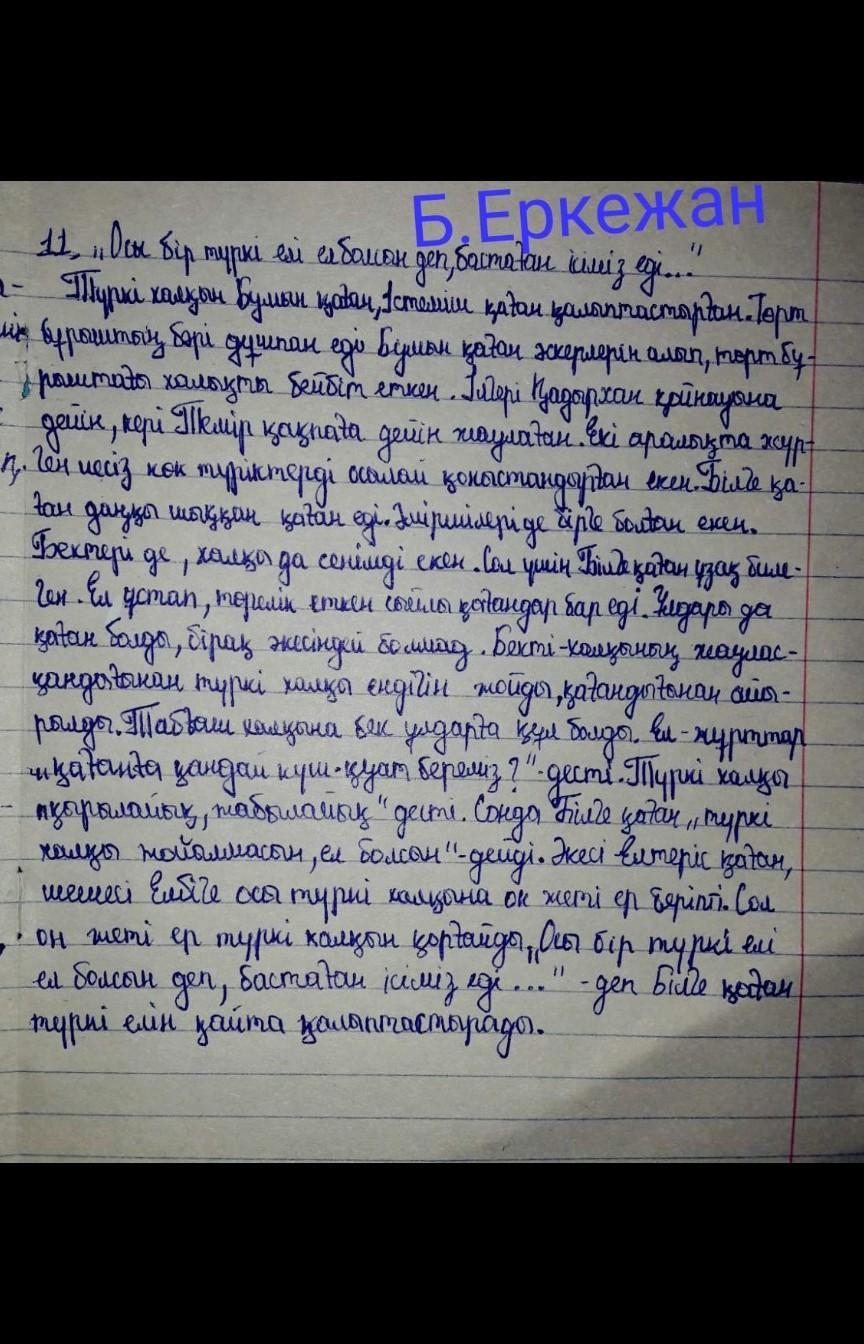 Б.Еркежан
11. „Осы бір түркі елі ел болсын деп, бастаған ісіміз еді..."
Түркі халқын Бумын қаған, Істеміш қаған қалыптастырған. Төрт
бұрыштың бәрі дұшпан еді Бумын қаған әскерлерін алып, төрт бұ-
рыштағы халықты бейбіт еткен. Ілгері Қадырхан қойнауына
дейін, кері Темір қақпаға дейін жаулаған. Екі аралықта жүр-
ген иесіз көк түріктерді осылай қоныстандырған екен. Білге қа-
ған даңқы шыққан қаған еді. Әміршілері де бірге болған екен.
Бектері де, халқы да сенімді екен. Сол үшін Білге қаған ұзақ биле-
ген. Ел ұстап, төрелік еткен сыйлы қағандар бар еді. Ұлдары да
қаған болды, бірақ әкесіндей болмад. Бекті-халқының жаулас-
қандығынан түркі халқы елдігін жойды, қағандығынан айы-
рылды. Табғаш халқына бек ұлдарға құл болды. Ел-жұрттар
„қағанға қандай күш-қуат береміз?"-десті. Түркі халқы
„қырылайық, жабылайық" десті. Сонда Білге қаған „түркі
халқы жойылмасын, ел болсын"-дейді. Әкесі Елтеріс қаған,
шешесі Елбілге осы түркі халқына он жеті ер беріпті. Сол
он жеті ер түркі халқын қорғайды, „Осы бір түркі елі
ел болсын деп, бастаған ісіміз еді..." -деп Білге қаған
түркі елін қайта қалыптастырады.